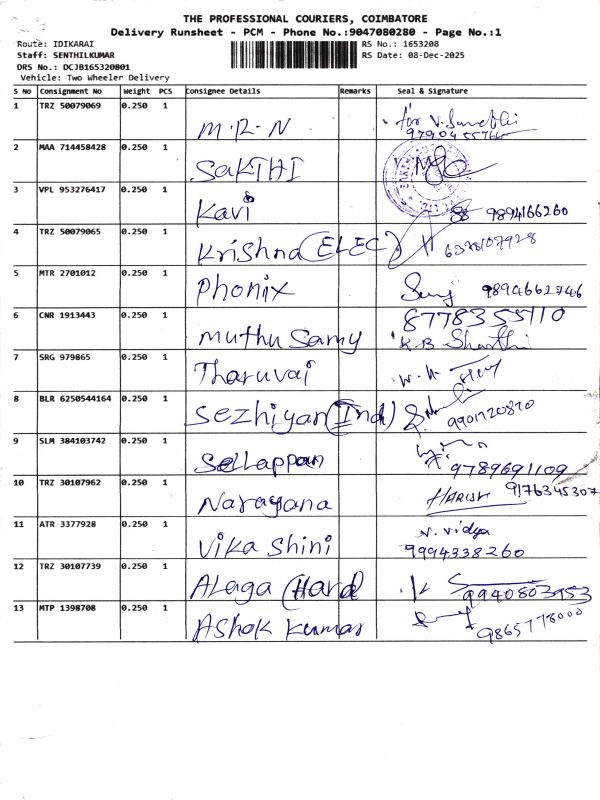 THE PROFESSIONAL COURIERS, COIMBATORE
Delivery Runsheet - PCM - Phone No.:9047080280 - Page No.:1
Route: IDIKARAI RS No.: 1653208
Staff: SENTHILKUMAR RS Date: 08-Dec-2025
DRS No.: DCJB165320801
Vehicle: Two Wheeler Delivery
S No Consignment No Weight PCS Consignee Details Remarks Seal & Signature
1 TRZ 50079069 0.250 1 M.R.N for V.
9790455766
2 MAA 714458428 0.250 1 SaKTHI
3 VPL 953276417 0.250 1 Kavi 9894166260
4 TRZ 50079065 0.250 1 Krishna (ELEC)
5 MTR 2701012 0.250 1 Phonix 9894662746
6 CNR 1913443 0.250 1 Muthu Samy 8778355110
K.B
7 SRG 979865 0.250 1 Tharuvai
8 BLR 6250544164 0.250 1 Sezhiyan (Ind) 9901720820
9 SLM 384103742 0.250 1 Sellappan 9789691109
10 TRZ 30107962 0.250 1 Narayana HARISH 9176345307
11 ATR 3377928 0.250 1 Vika Shini V. Vidya
9994338260
12 TRZ 30107739 0.250 1 ALaga (Hard 9940803953
13 MTP 1398708 0.250 1 Ashok Kumar 9865778000